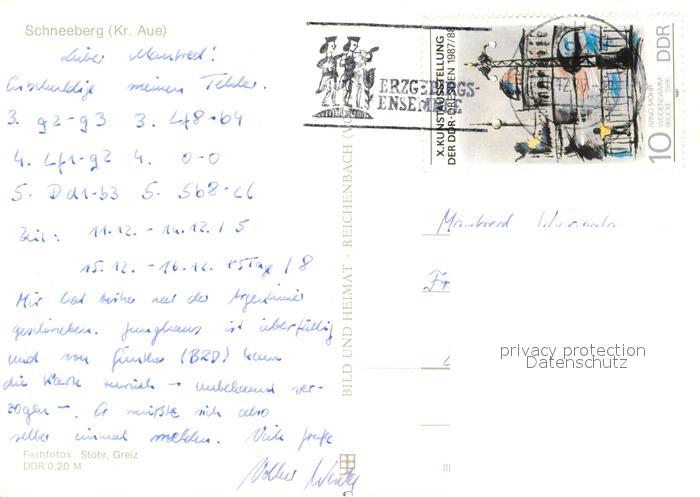 Schneeberg (Kr. Aue)
Lieber Manfred!
Entschuldige meinen Fehler.
3. g2-g3 3. Lf8-b4
4. Lf1-g2 4. 0-0
5. Dd1-b3 5. Sb8-c6
Zeit: 11.12. - 14.12. / 5
15.12. - 16.12. +5Tage / 8
Mir hat bisher nur der Argentinier
geschrieben. Junghans ist überfällig
und von Günther (BRD) kam
die Karte zurück - unbekannt ver-
zogen -. Er müßte sich also
selber einmal melden. Viele Grüße
Volker
Farbfotos: Stöhr, Greiz
DDR 0,20 M
BILD UND HEIMAT · REICHENBACH (V
III
ERZGEBIRGS-
ENSEMBLE
X. KUNSTAUSSTELLUNG
DER DDR DRESDEN 1987/88
DDR
10
ARNO MOHR
WEIDENDAMM-
BRÜCKE 1986
Manfred
Fr
privacy protection
Datenschutz